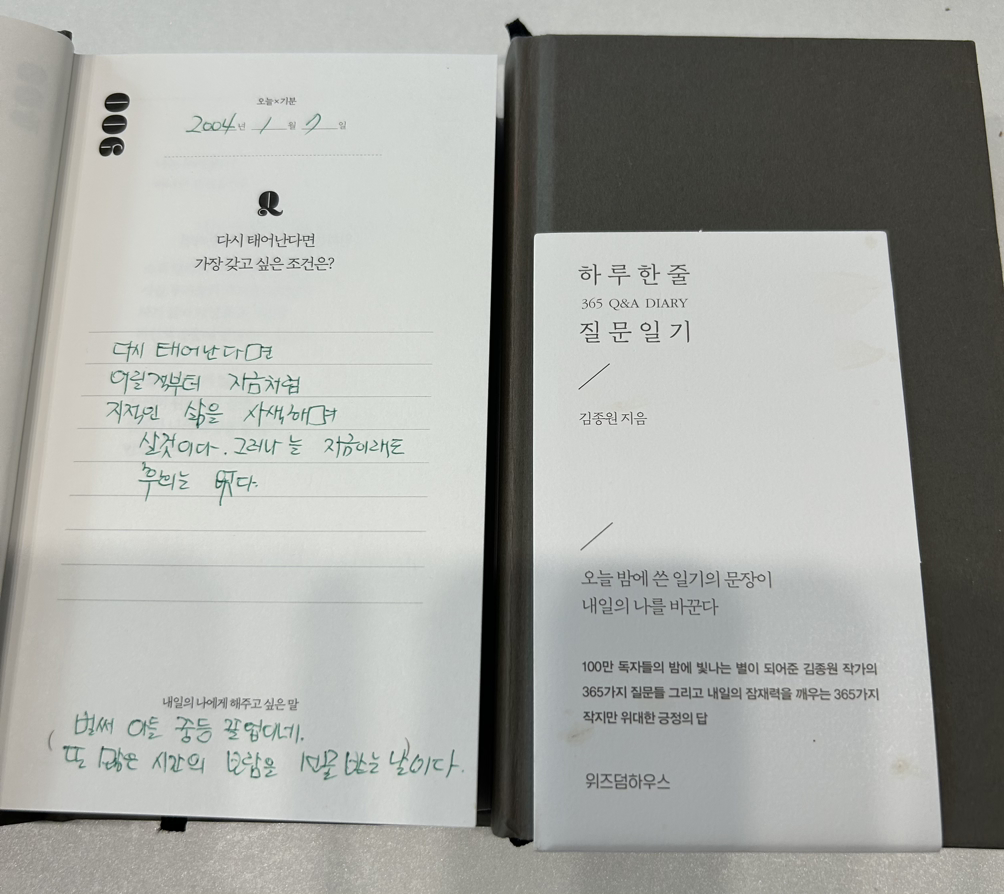 006
오늘×기분
2004년 1월 7일
Q
다시 태어난다면
가장 갖고 싶은 조건은?
다시 태어난다면
어릴적부터 지금처럼
지적인 삶을 사색하며
살것이다. 그러나 늘 지금이래도
후회는 없다.
내일의 나에게 해주고 싶은 말
벌써 아들 중등 졸업이네.
(또 많은 시간의 보람을 선물 받는 날)이다.
하루 한 줄
365 Q&A DIARY
질문일기
김종원 지음
오늘 밤에 쓴 일기의 문장이
내일의 나를 바꾼다
100만 독자들의 밤에 빛나는 별이 되어준 김종원 작가의
365가지 질문들 그리고 내일의 잠재력을 깨우는 365가지
작지만 위대한 긍정의 답
위즈덤하우스